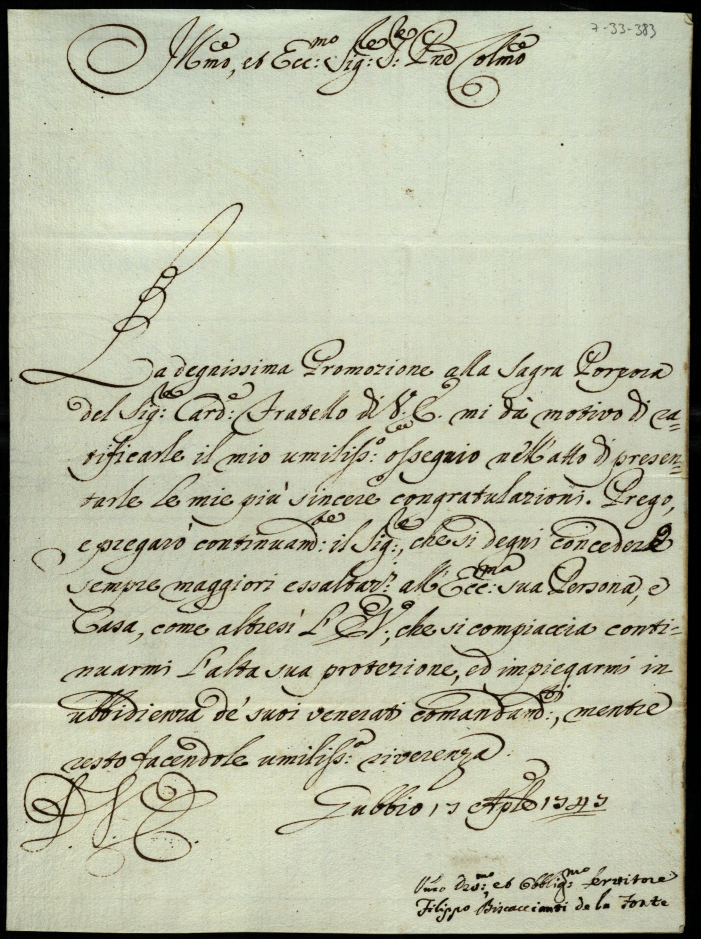 7-33-383
Ill.mo, et Ecc:mo Sig:re S:re Pne Colmo
La degnissima Promozione alla Sagra Porpora
del Sig:re Card:e Fratello di V.E. mi dà motivo di ra=
tificarle il mio umiliss:o ossequio nell'atto di presen=
tarle le mie più sincere congratulazioni. Prego,
e pregarò continuam:te il Sig:re, che si degni concedere
sempre maggiori essaltaz:i all'Ecc:ma sua Persona, e
Casa, come altresì l'E.V., che si compiaccia conti=
nuarmi l'alta sua protezione, ed impiegarmi in
ubbidienza de' suoi venerati comandam:ti, mentre
resto facendole umiliss:a riverenza
D. V. E.
Gubbio 17 Aple 1747
Umo Devmo:, et Obblig:mo Servitore
Filippo Biscaccianti de la Fonte